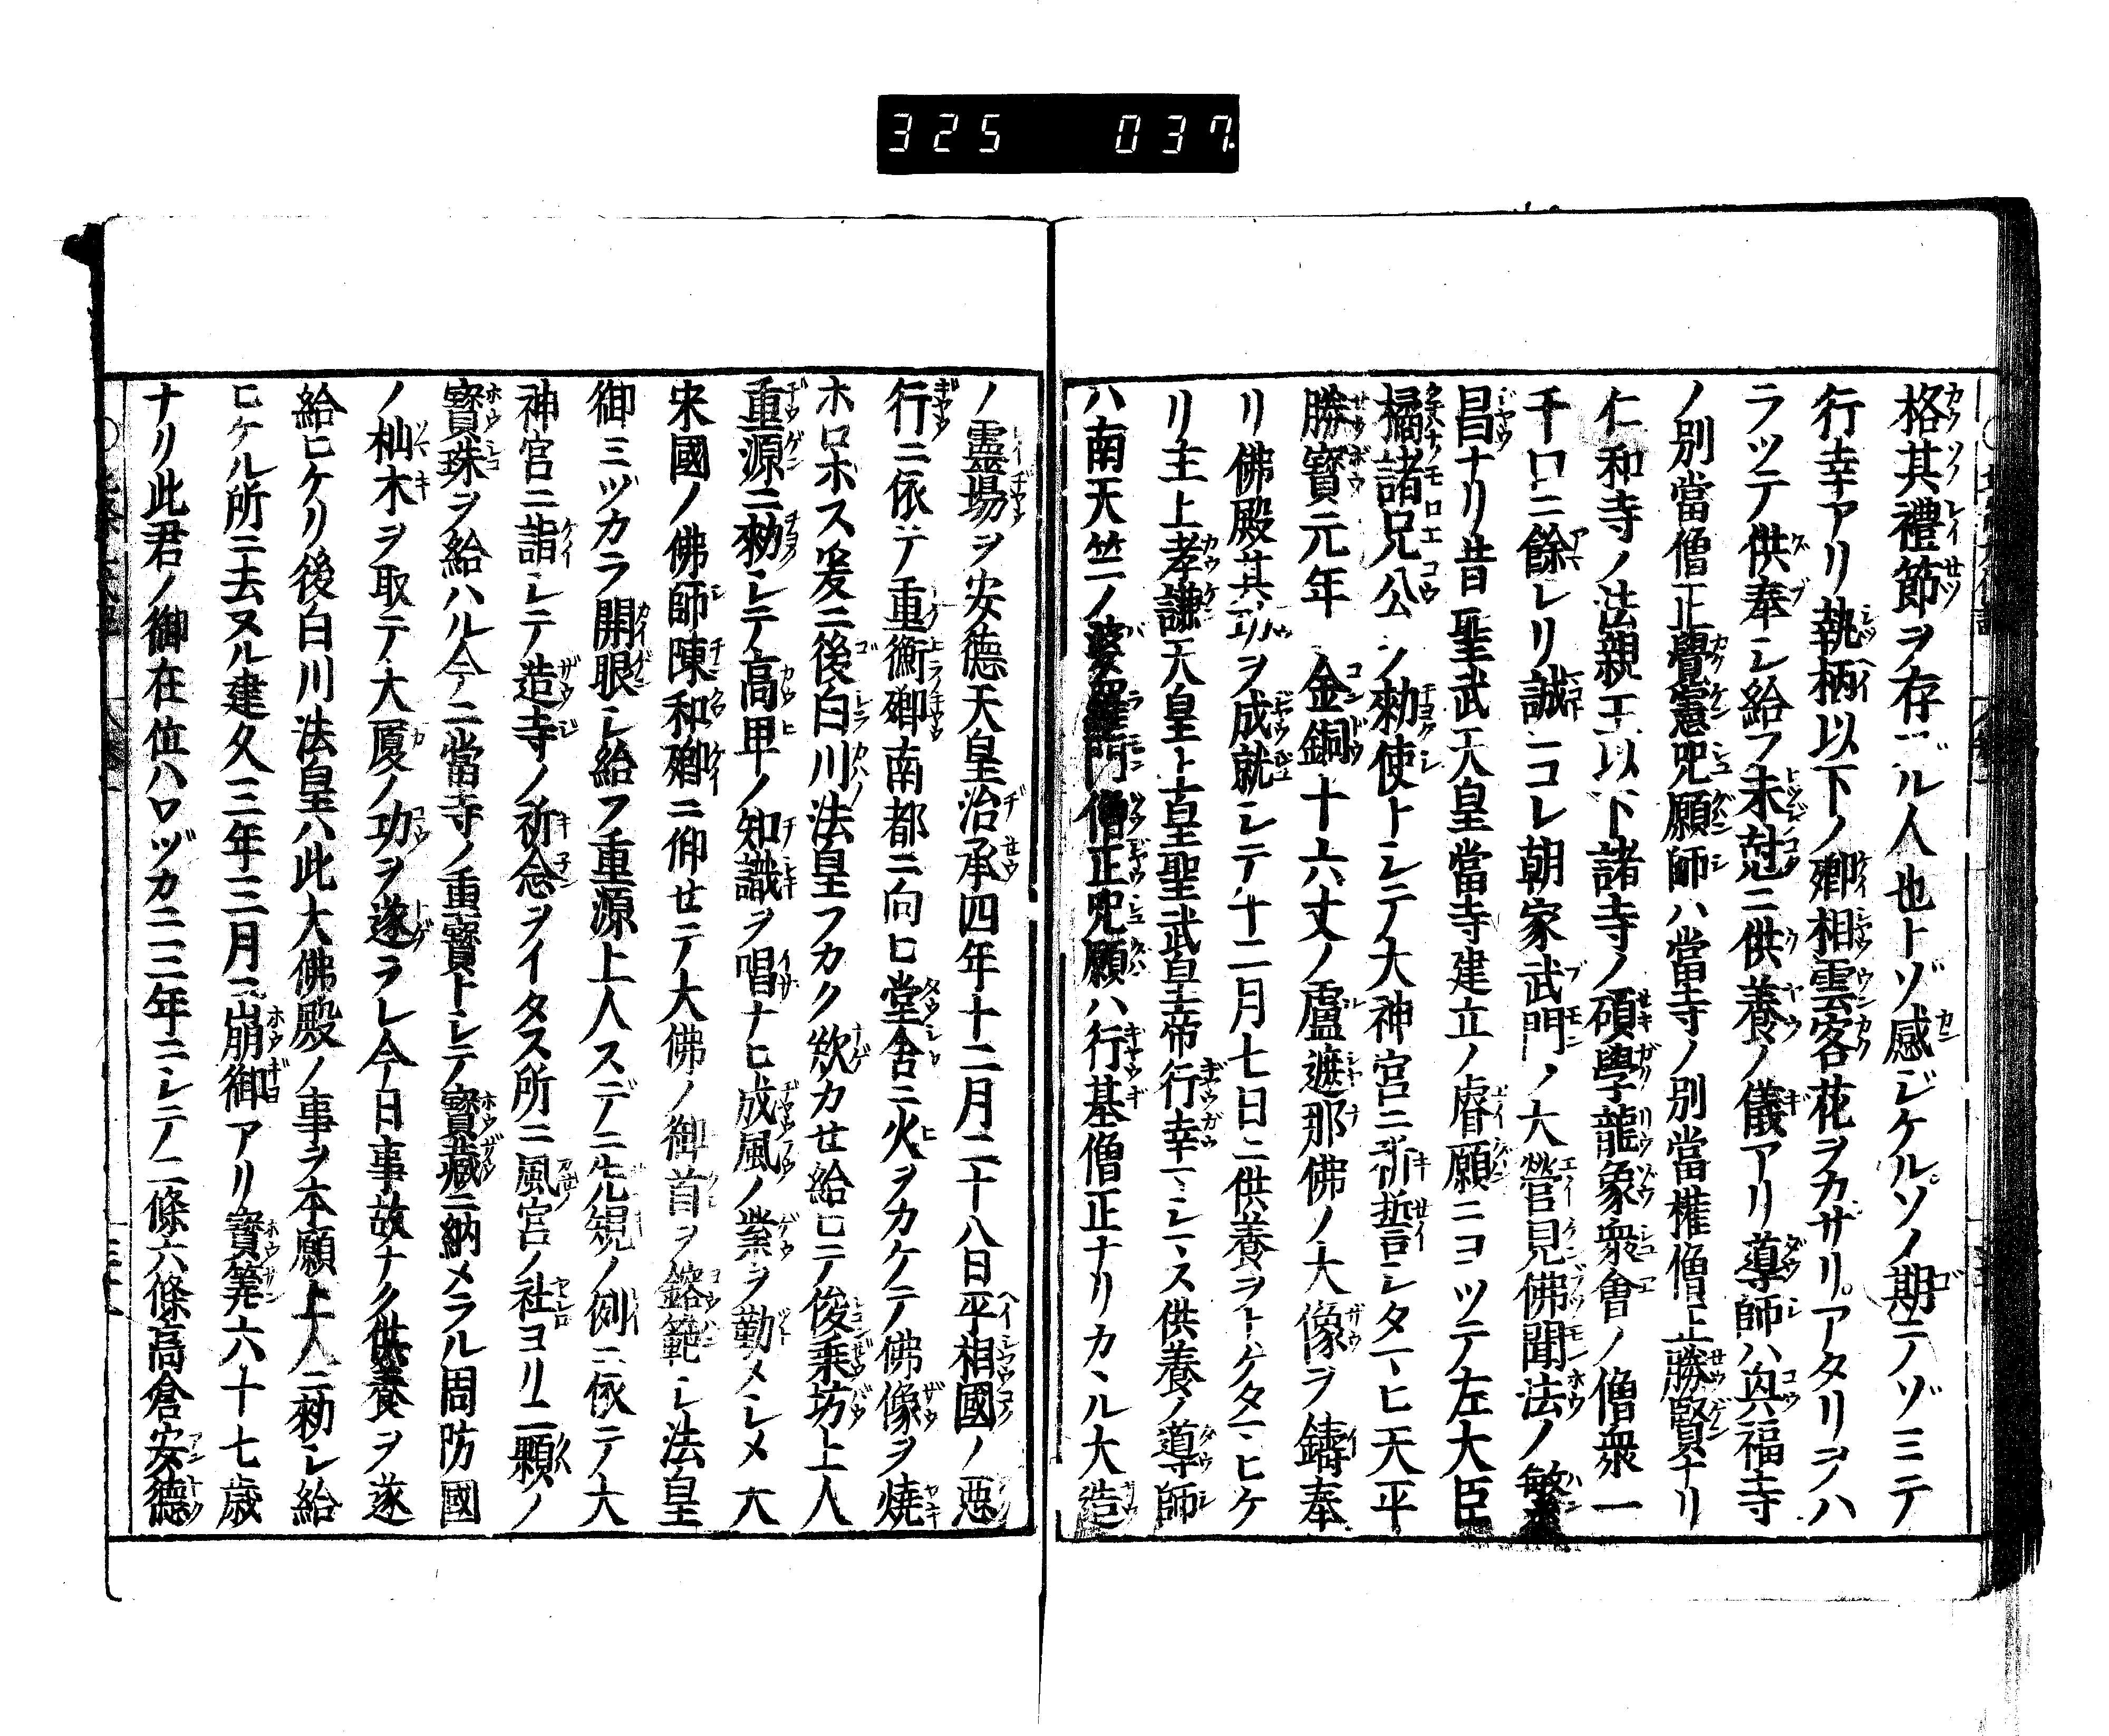 325 037
格其禮節ヲ存ズル人也トゾ感ジケルソノ期ニノゾミテ
行幸アリ執柄以下ノ卿相雲客花ヲカザリアタリヲハ
ラツテ供奉シ給フ未尅ニ供養ノ儀アリ導師ハ興福寺
ノ別當僧正覺憲咒願師ハ當寺ノ別當権僧正勝賢ナリ
仁和寺ノ法親王以下諸寺ノ碩學龍象衆會ノ僧衆一
千口ニ餘レリ誠ニコレ朝家武門ノ大營見佛聞法ノ繁
昌ナリ昔聖武天皇當寺建立ノ睿願ニヨツテ左大臣
橘諸兄公ヲ勅使トシテ大神宮ニ祈誓シタマヒ天平
勝寶元年金銅十六丈ノ盧遮那佛ノ大像ヲ鑄奉
リ佛殿其功ヲ成就シテ十二月七日ニ供養ヲトゲタマヒケ
リ主上孝謙天皇ト太上皇聖武皇帝行幸マシマス供養ノ導師
ハ南天竺ノ婆羅門僧正咒願ハ行基僧正ナリカヽル大造
ノ靈場ヲ安德天皇治承四年十二月二十八日平相國ノ惡
行ニ依テ重衡卿南都ニ向ヒ堂舎ニ火ヲカケテ佛像ヲ燒
ホロホス爰ニ後白川法皇フカク歎カセ給ヒテ俊乗坊上人
重源ニ勅シテ高卑ノ知識ヲ唱ナヒ成風ノ業ヲ勤メシメ大
宋國ノ佛師陳和卿ニ仰セテ大佛ノ御首ヲ鎔範シ法皇
御ミヅカラ開眼シ給フ重源上人スデニ先規ノ例ニ依テ大
神宮ニ詣シテ造寺ノ祈念ヲイタス所ニ風宮ノ社ヨリ二顆ノ
寶珠ヲ給ハル今ニ當寺ノ重寶トシテ寶藏ニ納メラル周防國
ノ杣木ヲ取テ大厦ノ功ヲ遂ラレ今日事故ナク供養ヲ遂
給ヒケリ後白川法皇ハ此大佛殿ノ事ヲ本願上人ニ勅シ給
ヒケル所ニ去ヌル建久三年三月ニ崩御アリ寶筭六十七歳
ナリ此君ノ御在位ハワヅカニ三年ニシテノ二條六條高倉安德